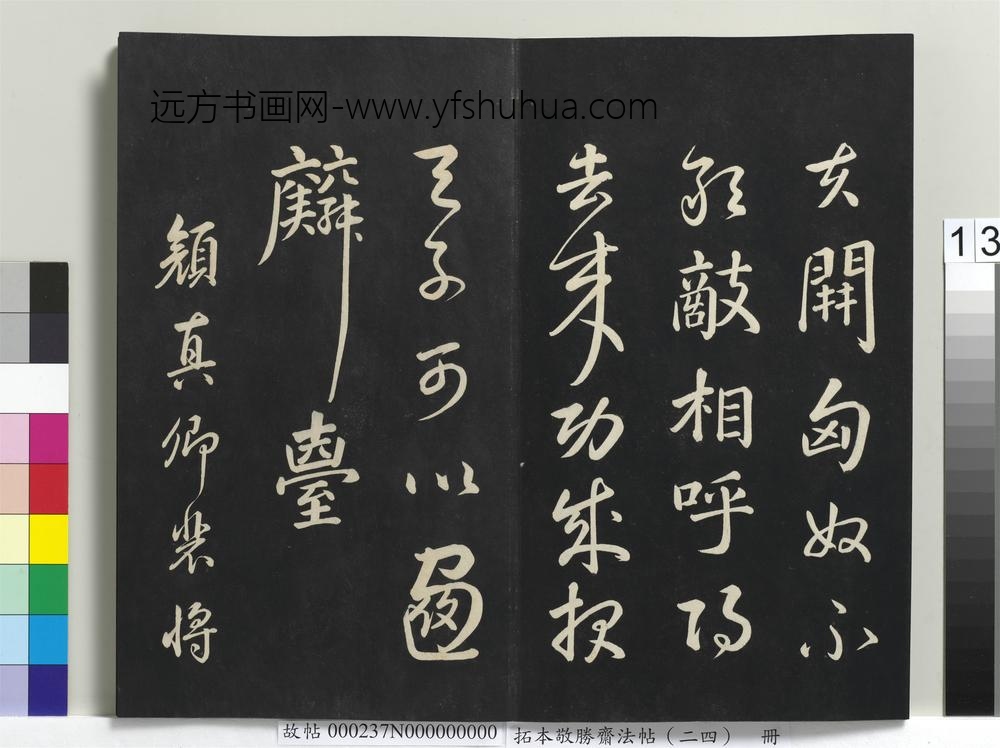 远方书画网-www.yfshuhua.com
夫開匈奴不
敢敵相呼歸
去來功成報
天子可以畫
麟臺
顏真卿裴將
13
故帖 000237N000000000
拓本敬勝齋法帖(二四) 冊